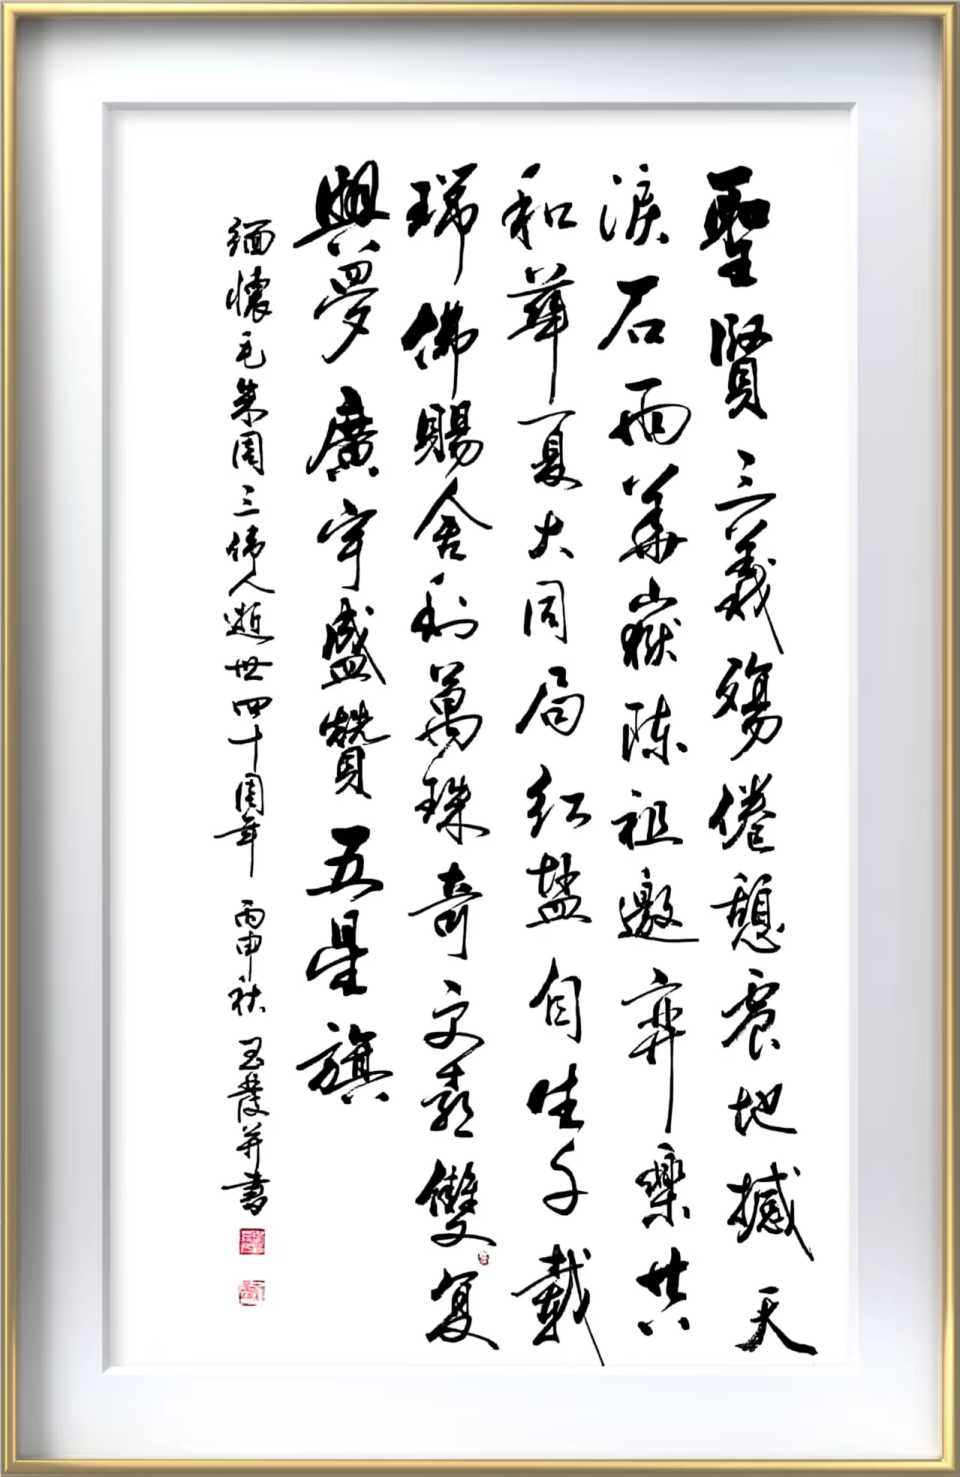 聖賢三義殤倦憩震地撼天
淚石雨華嶽陈祖邀弈樂共
和華夏大同局红盐自生千載
瑞佛賜舍利萬珠奇文彰雙复
興夢廣宇盛贊五星旗
緬懷毛朱周三偉人逝世四十周年 丙申秋 玉發并書